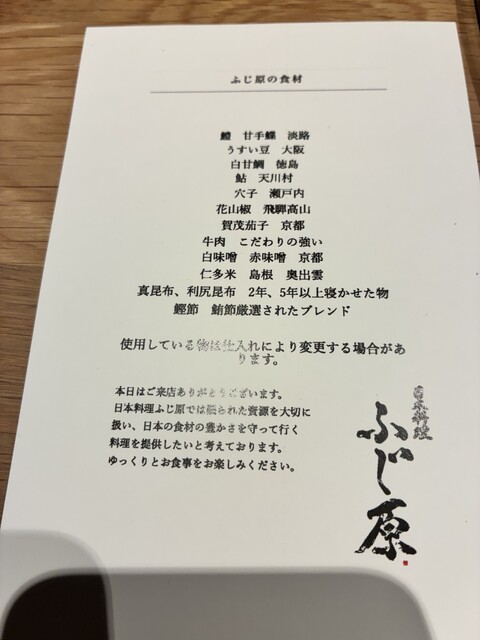 ふじ原の食材
鱧　甘手鰈　淡路
うすい豆　大阪
白甘鯛　徳島
鮎　天川村
穴子　瀬戸内
花山椒　飛騨高山
賀茂茄子　京都
牛肉　こだわりの強い
白味噌　赤味噌　京都
仁多米　島根　奥出雲
真昆布、利尻昆布　2年、5年以上寝かせた物
鰹節　鮪節厳選されたブレンド
使用している物は仕入れにより変更する場合があ
ります。
本日はご来店ありがとうございます。
日本料理ふじ原では限られた資源を大切に
扱い、日本の食材の豊かさを守って行く
料理を提供したいと考えております。
ゆっくりとお食事をお楽しみください。
日本料理
ふじ原